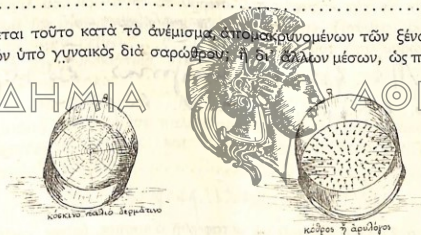 εται τοῦτο κατὰ τὸ ἀνέμισμα, ἀπομακρυνομένων τῶν ξένω
ῶν ὑπὸ γυναικὸς διὰ σαρώθρου; ἢ δι' ἄλλων μέσων, ὡς π
ΔΗΜΙΑ ΑΘΗ
κόσκινο παλιό δερμάτινο
κόθρος ἢ ἀρυλόγος